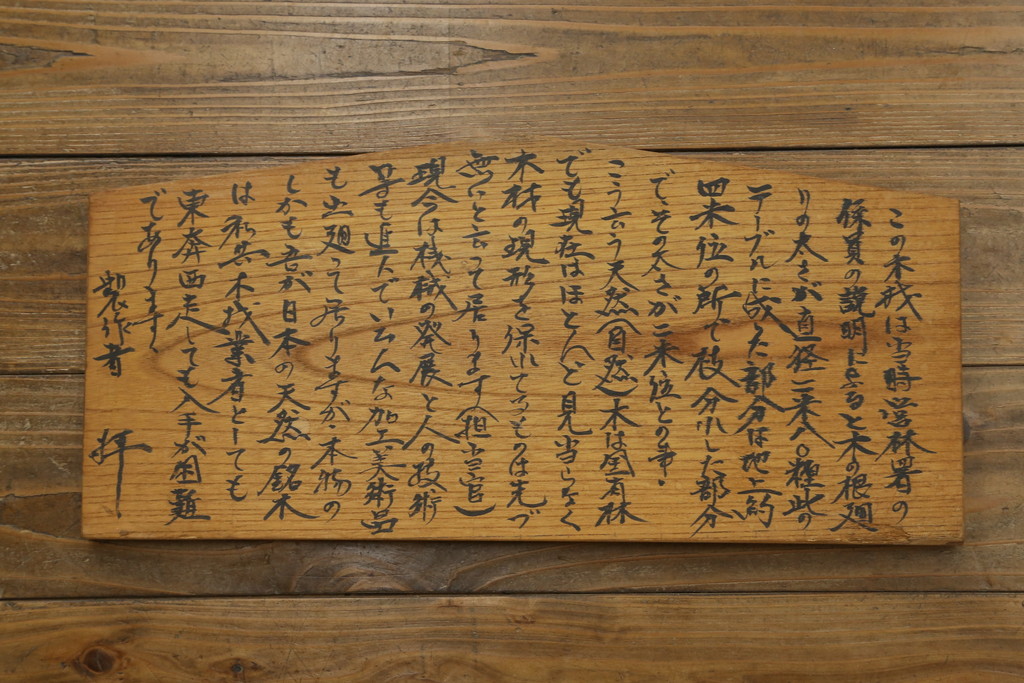 この木材は当時営林署の
係員の説明によると木の根廻
りの太さが直径二米八〇糎此の
テーブルに成った部分は地上約
四米位の所で枝分れした部分
で、その太さが二米位との事・
こう言う天然(自然)木は国有林
でも現在はほとんど見当らなく
木材の現形を保れてるものは先づ
無いと言って居ります(担当官)
現今は機械の発展と人の技術
等も進んでいろんな加工美術品
も出廻って居りますが、本物の
しかも吾が日本の天然の銘木
は私共木材業者としても
東奔西走しても入手が困難
であります、
製作者 拝